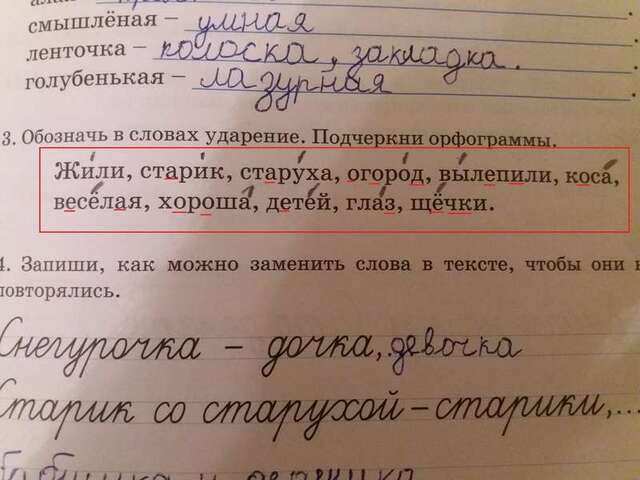 смышлёная – умная
ленточка – полоска, закладка.
голубенькая – лазурная
3. Обозначь в словах ударение. Подчеркни орфограммы.
Жили, старик, старуха, огород, вылепили, коса,
весёлая, хороша, детей, глаз, щёчки.
4. Запиши, как можно заменить слова в тексте, чтобы они
повторялись.
Снегурочка – дочка, девочка
Старик со старухой – старики,...